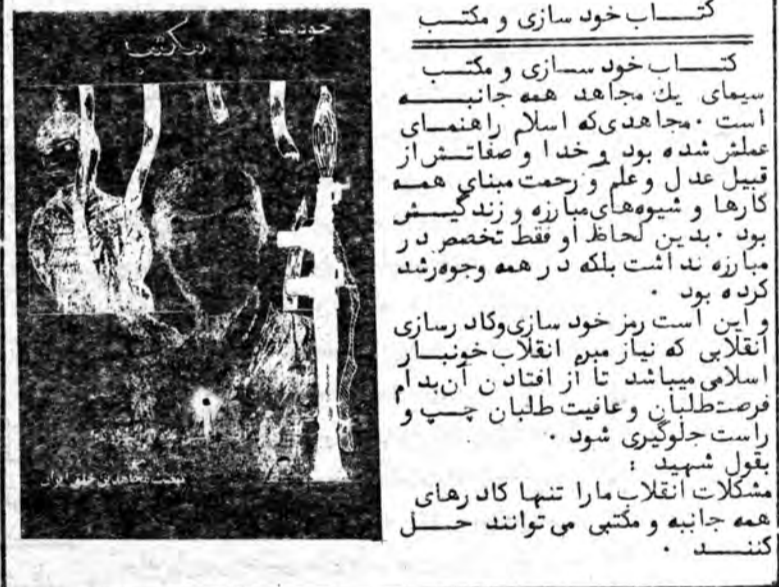 کتاب خود سازی و مکتب
کتاب خود سازی و مکتب
سیمای یك مجاهد همه جانبه
است ٠ مجاهدی‌که اسلام راهنمای
عملش شده بود و خدا و صفاتش از
قبیل عدل و علم و رحمت مبنای همه
کارها و شیوه‌های مبارزه و زندگیش
بود ٠ بدین لحاظ او فقط تخصص در
مبارزه نداشت بلکه در همه وجوه رشد
کرده بود ٠
و این است رمز خود سازی‌و کادرسازی
انقلابی که نیاز مبرم انقلاب خونبار
اسلامی میباشد تا از افتادن آن بدام
فرصت‌طلبان و عافیت طلبان چپ و
راست جلوگیری شود ٠
بقول شهید :
مشکلات انقلاب ما را تنها کادرهای
همه جانبه و مکتبی می‌توانند حل
کنند ٠
مکتب
نهضت مجاهدین خلق ایران